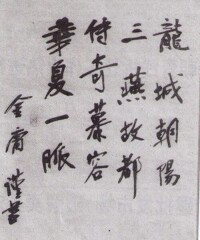 龍城朝陽
三燕故都
傳奇慕容
華夏一脈
金庸謹書